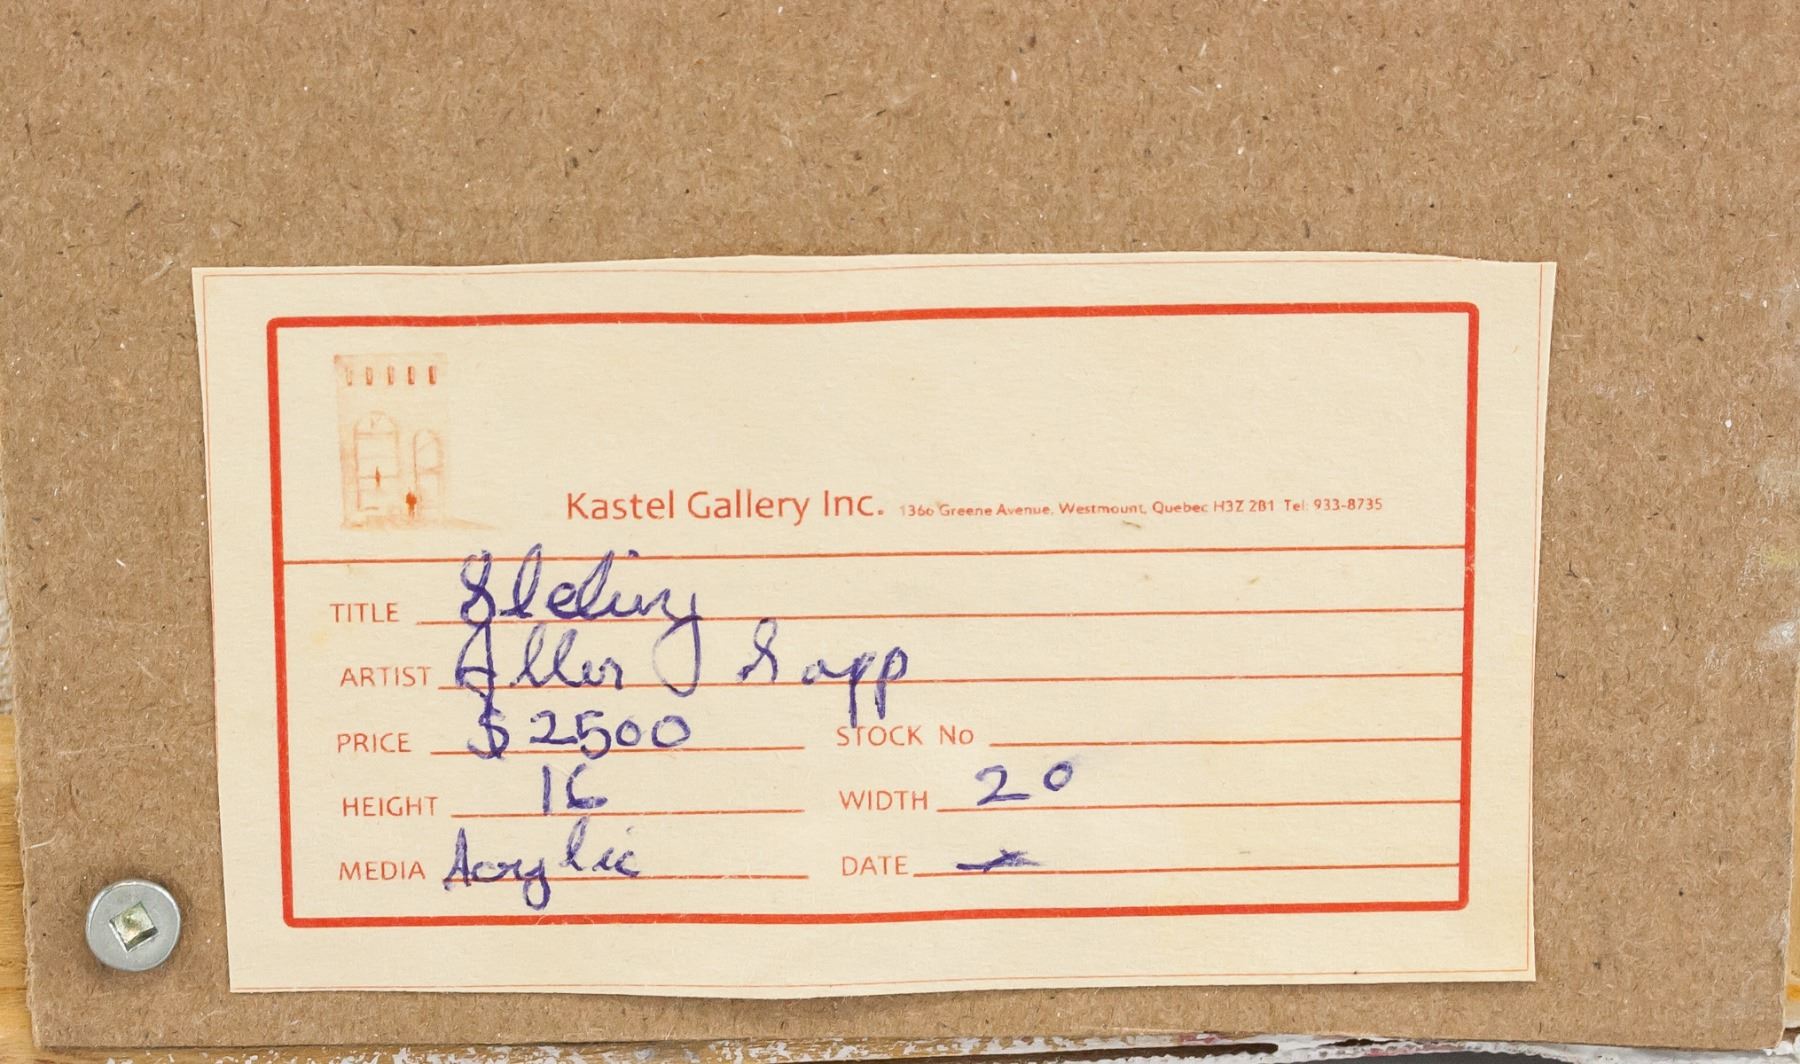 Kastel Gallery Inc. 1366 Greene Avenue, Westmount, Quebec H3Z 2B1 Tel: 933-8735
TITLE Sleding
ARTIST Allen Sapp
PRICE $2500 STOCK No
HEIGHT 16 WIDTH 20
MEDIA Acrylic DATE